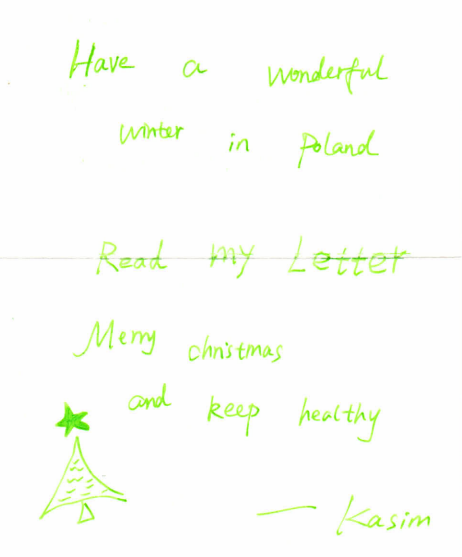 Have a wonderful
winter in Poland
Read my Letter
Merry christmas
and keep healthy
— Kasim